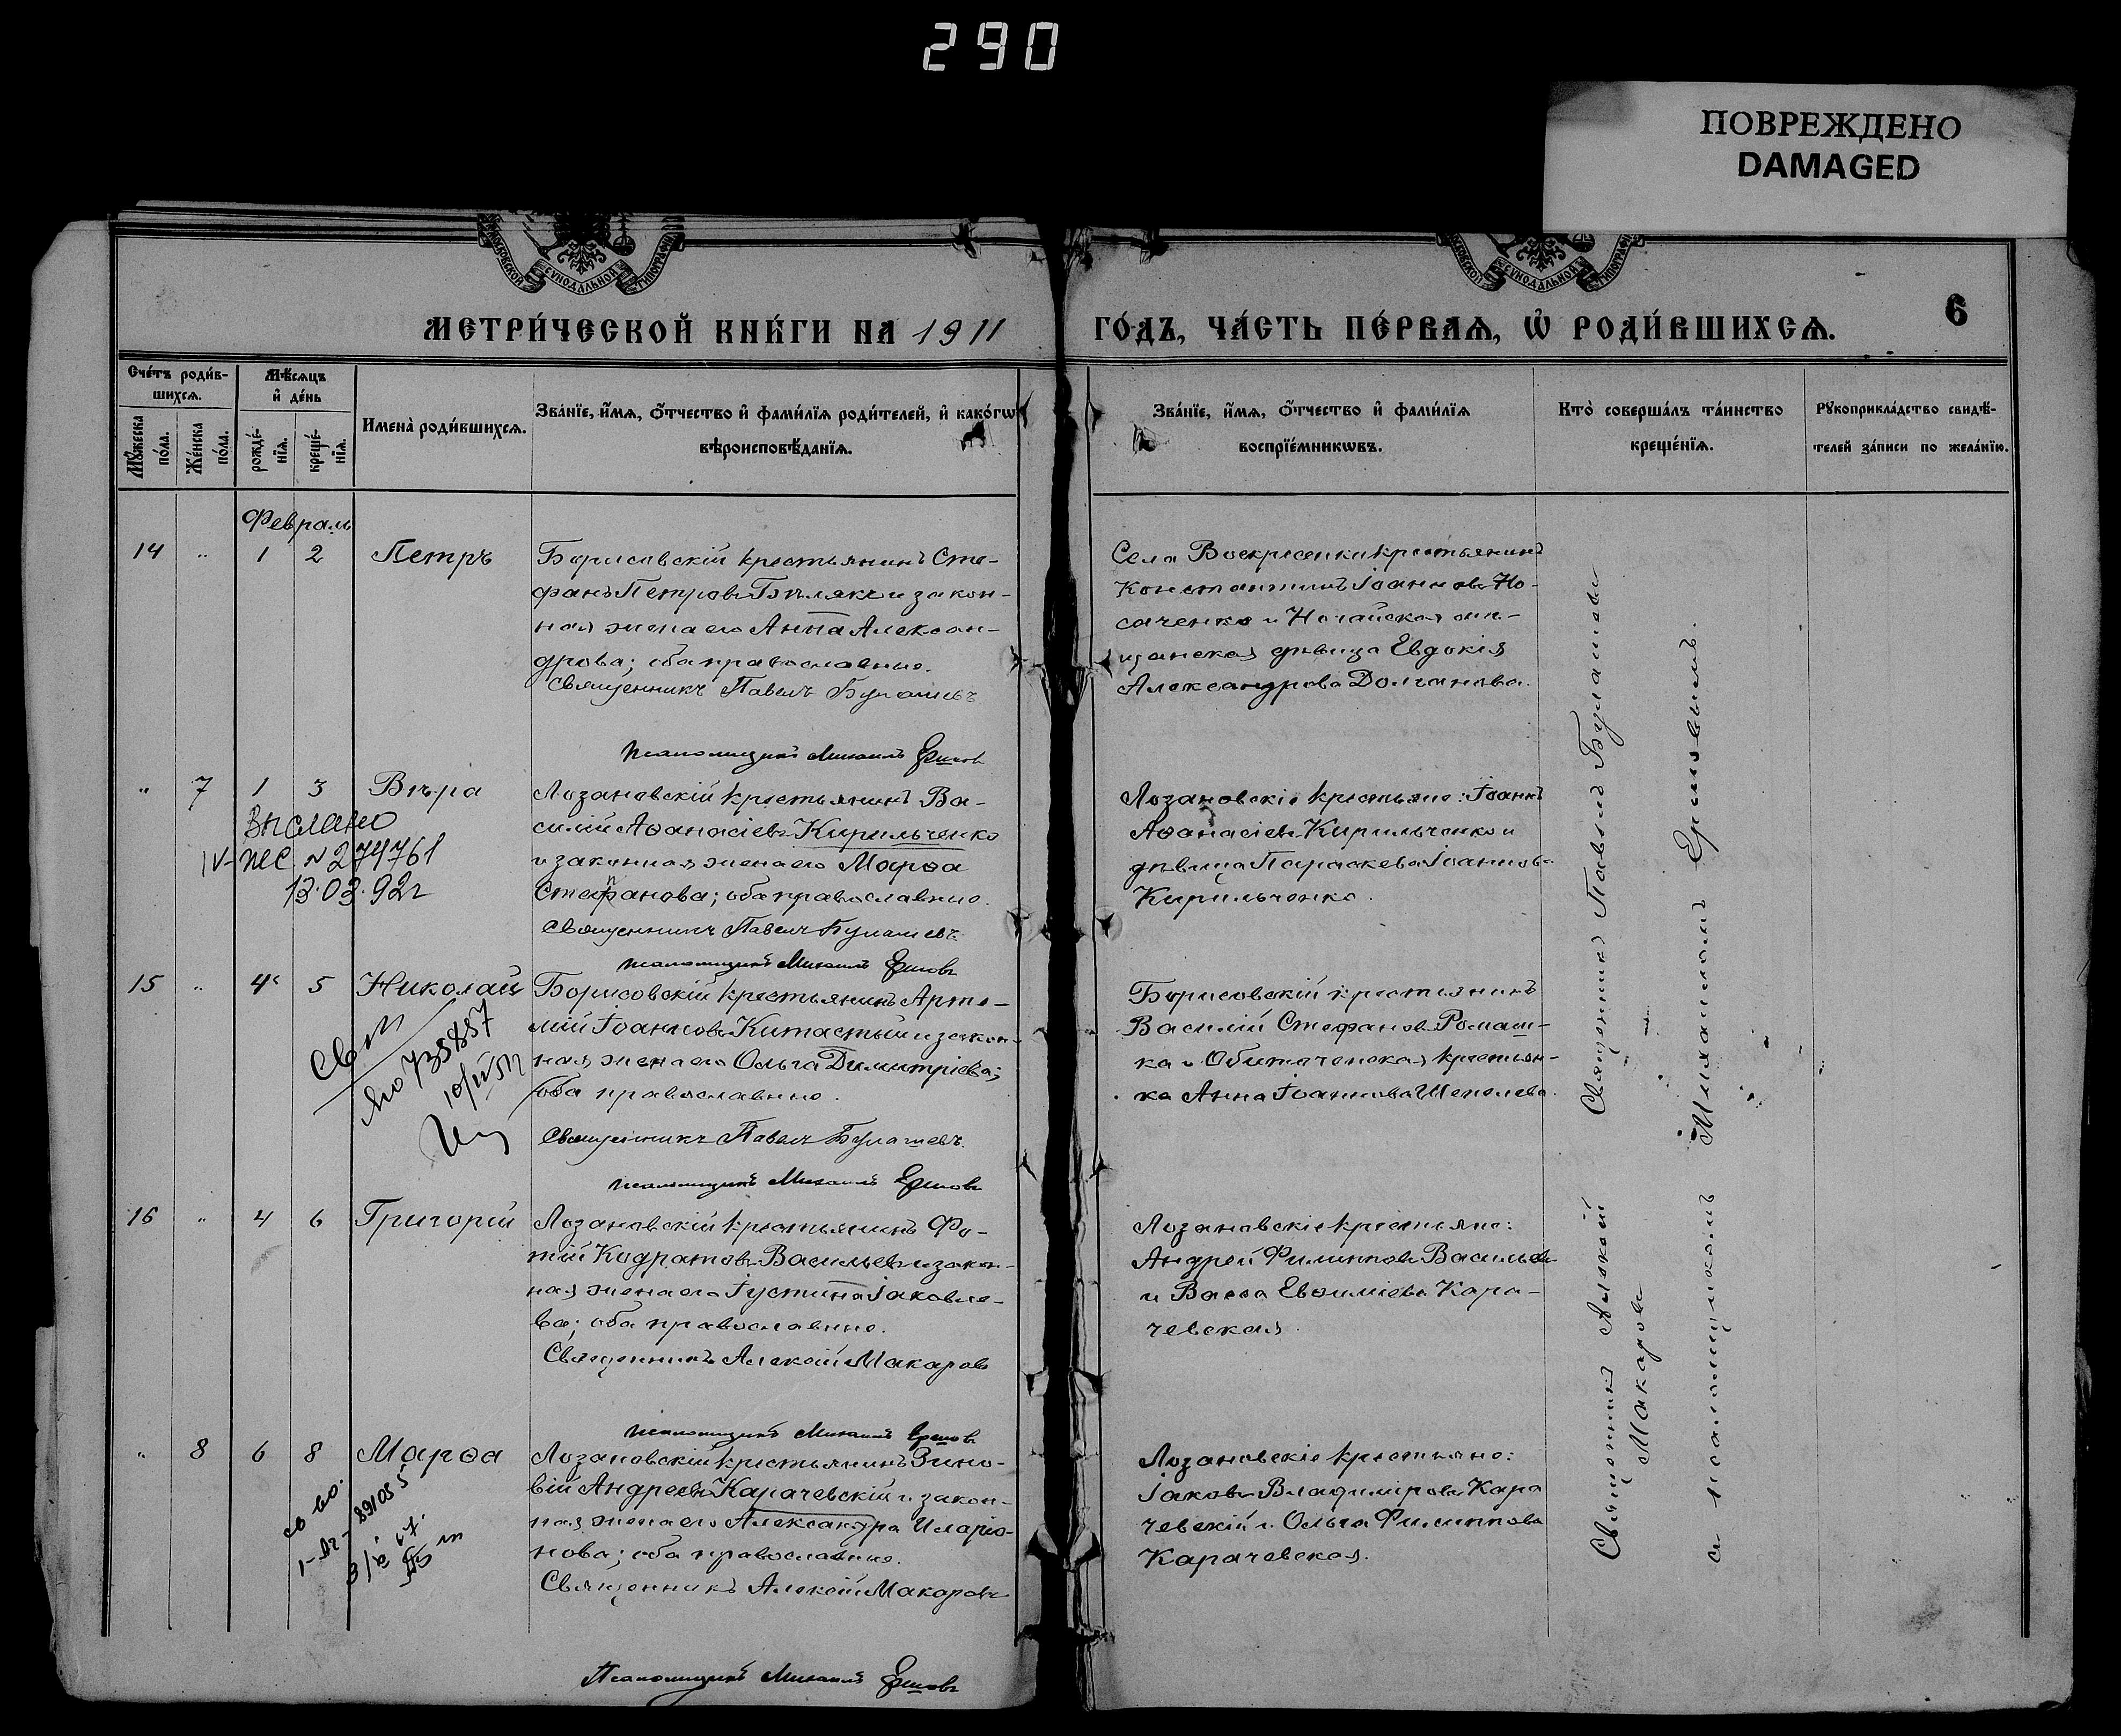 290
ПОВРЕЖДЕНО
DAMAGED
МОСКОВСКОЙ СѴНОДАЛЬНОЙ ТИПОГРАФІИ
СѴНОДАЛЬНОЙ ТИПОГРАФІИ
МЕТРИ́ЧЕСКОЙ КНИ́ГИ НА 1911
ГО́ДЪ, ЧА́СТЬ ПЕ́РВАѦ, Ѡ҆ РОДИ́ВШИХСѦ.
6
Сче́тъ роди́в-
шихсѧ.
Мꙋ́жеска по́ла.
Же́нска по́ла.
Мѣ́сѧцъ
и҆ де́нь
рожде́-
нїѧ.
креще́-
нїѧ.
Имена̀ роди́вшихсѧ.
Зва́нїе, и҆́мѧ, ѻ҆́тчество и҆ фами́лїѧ роди́телей, и҆ како́гѡ
вѣроисповѣ́данїѧ.
Зва́нїе, и҆́мѧ, ѻ҆́тчество и҆ фами́лїѧ
воспрїе́мникѡвъ.
Кто̀ соверша́лъ та́инство
креще́нїѧ.
Рꙋкоприкла́дство свидѣ́-
телей за́писи по жела́нїю.
Февраль
14 " 1 2 Петръ
Борисовскій крестьянинъ Сте-
фанъ Петровъ Бѣлякъ и закон-
ная жена его Анна Алексан-
дрова; оба православные.
Священникъ Павелъ Булашевъ
Псаломщикъ Михаилъ Ершовъ
Села Воскресенки крестьянинъ
Константинъ Іоанновъ Но-
саченко и Ногайская мѣ-
щанская дѣвица Евдокія
Александрова Долганова.
" 7 1 3 Вѣра
Выслано
IV-ЖС N 274761
13.03.92г
Лозановскій крестьянинъ Ва-
силій Аѳанасіевъ Кирильченко
и законная жена его Марѳа
Стефанова; оба православные.
Священникъ Павелъ Булашевъ
Псаломщикъ Михаилъ Ершовъ
Лозановскіе крестьяне: Іоаннъ
Аѳанасіевъ Кирильченко и
дѣвица Параскева Іоаннова
Кирильченко.
15 " 4 5 Николай
735857
Борисовскій крестьянинъ Арте-
мій Іоанновъ Китастый и закон-
ная жена его Ольга Димитріева;
оба православные.
Священникъ Павелъ Булашевъ.
Псаломщикъ Михаилъ Ершовъ
Борисовскій крестьянинъ
Василій Стефановъ Ромаш-
ка и Обиточенская крестьян-
ка Анна Іоаннова Шепелева.
16 " 4 6 Григорій
Лозановскій крестьянинъ Фо-
тій Кодратовъ Васильевъ и закон-
ная жена его Іустина Іаковле-
ва; оба православные.
Священникъ Алексій Макаровъ
Псаломщикъ Михаилъ Ершовъ
Лозановскіе крестьяне:
Андрей Филипповъ Васильевъ
и Васса Евѳиміева Кара-
чевская.
" 8 6 8 Марѳа
Лозановскій крестьянинъ Зино-
вій Андреевъ Карачевскій и закон-
ная жена его Александра Иларіо-
нова; оба православные.
Священникъ Алексій Макаровъ
Псаломщикъ Михаилъ Ершовъ
Лозановскіе крестьяне:
Іаковъ Владиміровъ Кара
чевскій и Ольга Филиппова
Карачевская.
Священникъ Павелъ Булашевъ
Священникъ Алексій
Макаровъ
съ псаломщикомъ Михаиломъ Ершовымъ.